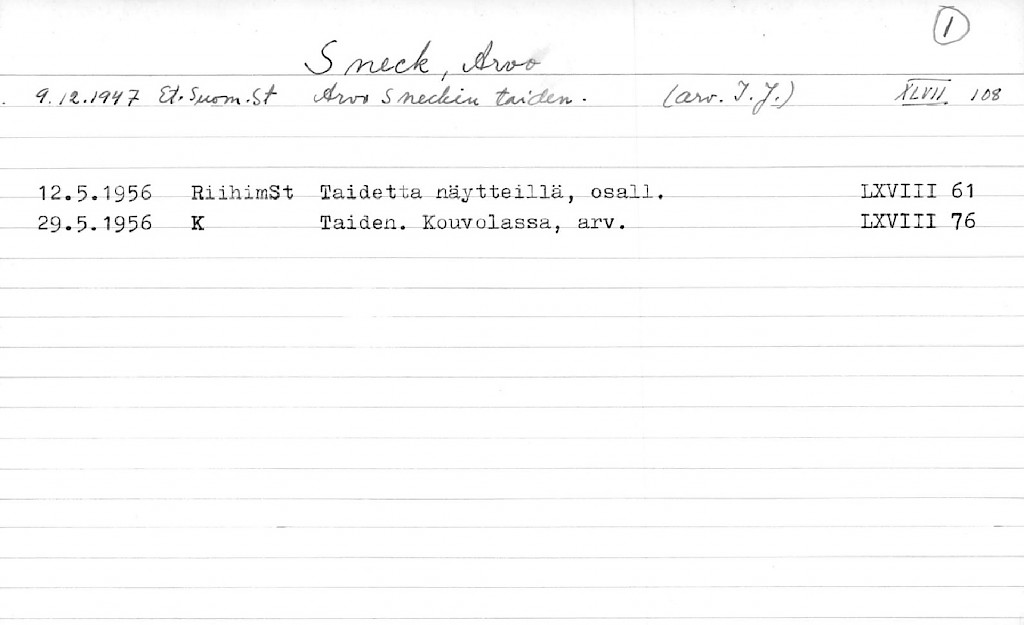 1
Sneck, Arvo
9.12.1947 Et.Suom.St Arvo Sneckin taiden. (arv. I.J.) XLVII 108
12.5.1956 RiihimSt Taidetta näytteillä, osall. LXVIII 61
29.5.1956 K Taiden. Kouvolassa, arv. LXVIII 76